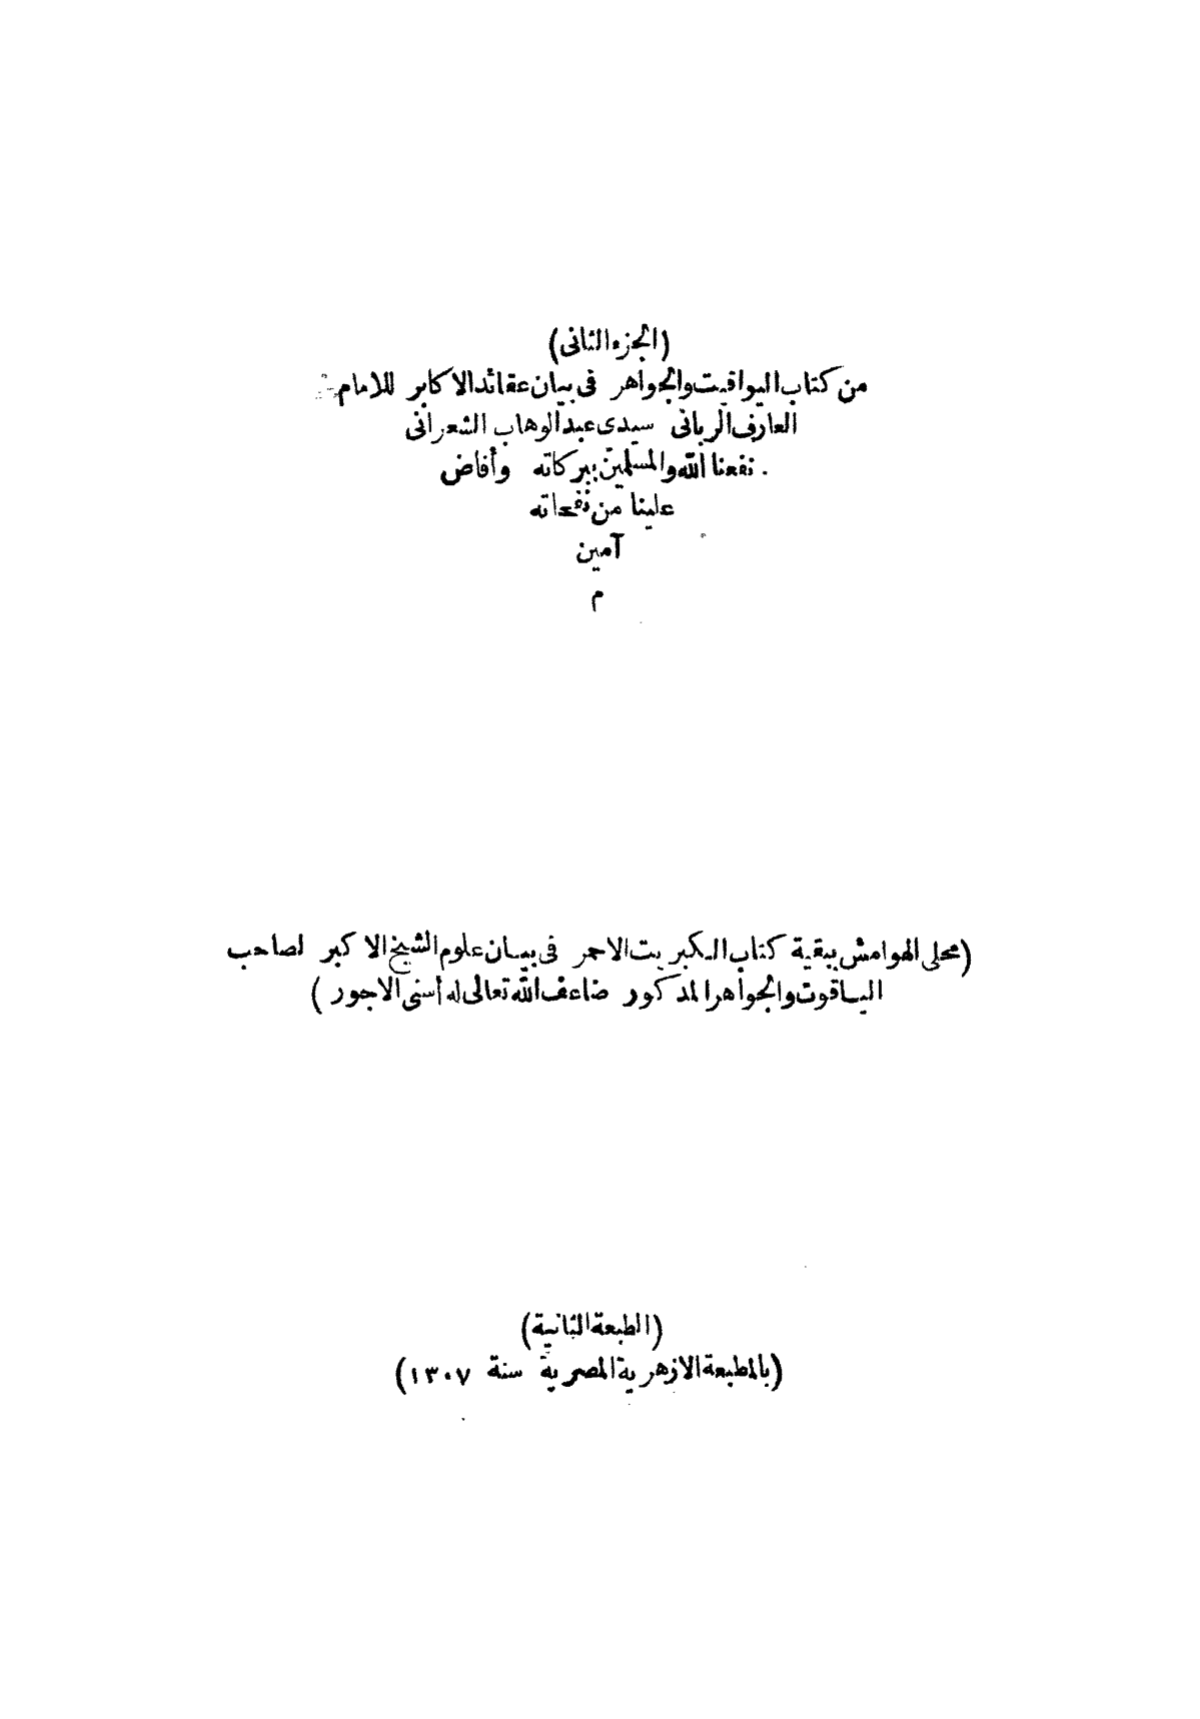 (الجزء الثانى)
من كتاب اليواقيت والجواهر فى بيان عقائد الاكابر للامام
العارف الربانى سيدى عبد الوهاب الشعرانى
نفعنا الله والمسلمين ببركاته وأفاض
علينا من نفحاته
آمين
م
(محلى الهوامش ببقية كتاب الكبريت الاحمر فى بيان علوم الشيخ الاكبر لصاحب
الياقوت والجواهر المذكور ضاعف الله تعالى له أسنى الاجور)
(الطبعة الثانية)
(بالمطبعة الازهرية المصرية سنة ١٣٠٧)